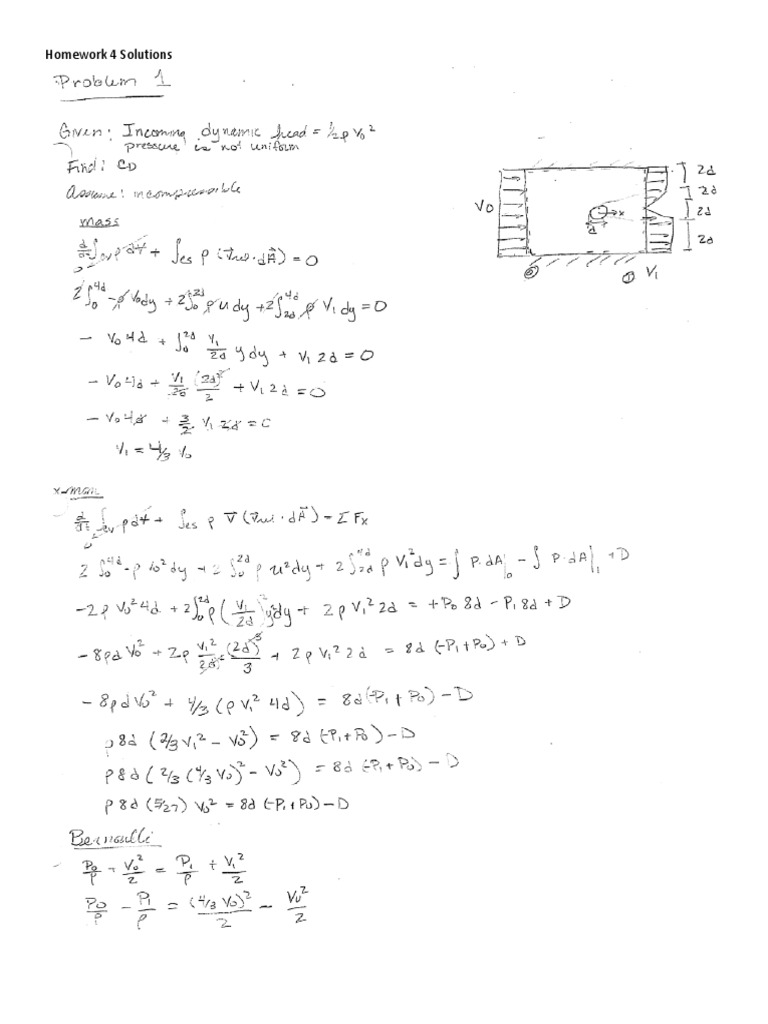 Homework 4 Solutions
Problem 1
Given: Incoming dynamic head = 1/2 ρ V0²
pressure is not uniform
Find: CD
Assume: incompressible
mass
d/dt ∫cv ρ d∀ + ∫cs ρ (V⃗rel · dA⃗) = 0
2∫₀^4d -ρ V0 dy + 2∫₀^2d ρ u dy + 2∫_2d^4d ρ V1 dy = 0
- V0 4d + ∫₀^2d V1/2d y dy + V1 2d = 0
- V0 4d + V1/2d (2d)²/2 + V1 2d = 0
- V0 4d + 3/2 V1 2d = 0
V1 = 4/3 V0
V0
d
x
2d
2d
2d
2d
0
1
V1
x-mom
d/dt ∫cv ρ d∀ + ∫cs ρ V⃗ (V⃗rel · dA⃗) = ΣFx
2∫₀^4d -ρ V0² dy + 2∫₀^2d ρ u² dy + 2∫_2d^4d ρ V1² dy = ∫ P·dA|₀ - ∫ P·dA|₁ + D
-2ρ V0² 4d + 2∫₀^2d ρ (V1/2d)² y² dy + 2ρ V1² 2d = +P0 8d - P1 8d + D
-8ρd V0² + 2ρ V1²/2d² (2d)³/3 + 2ρ V1² 2d = 8d (-P1 + P0) + D
-8ρd V0² + 4/3 (ρ V1² 4d) = 8d (-P1 + P0) - D
ρ8d (2/3 V1² - V0²) = 8d (-P1 + P0) - D
ρ8d (2/3 (4/3 V0)² - V0²) = 8d (-P1 + P0) - D
ρ 8d (5/27) V0² = 8d (-P1 + P0) - D
Bernoulli
P0/ρ + V0²/2 = P1/ρ + V1²/2
P0/ρ - P1/ρ = (4/3 V0)²/2 - V0²/2